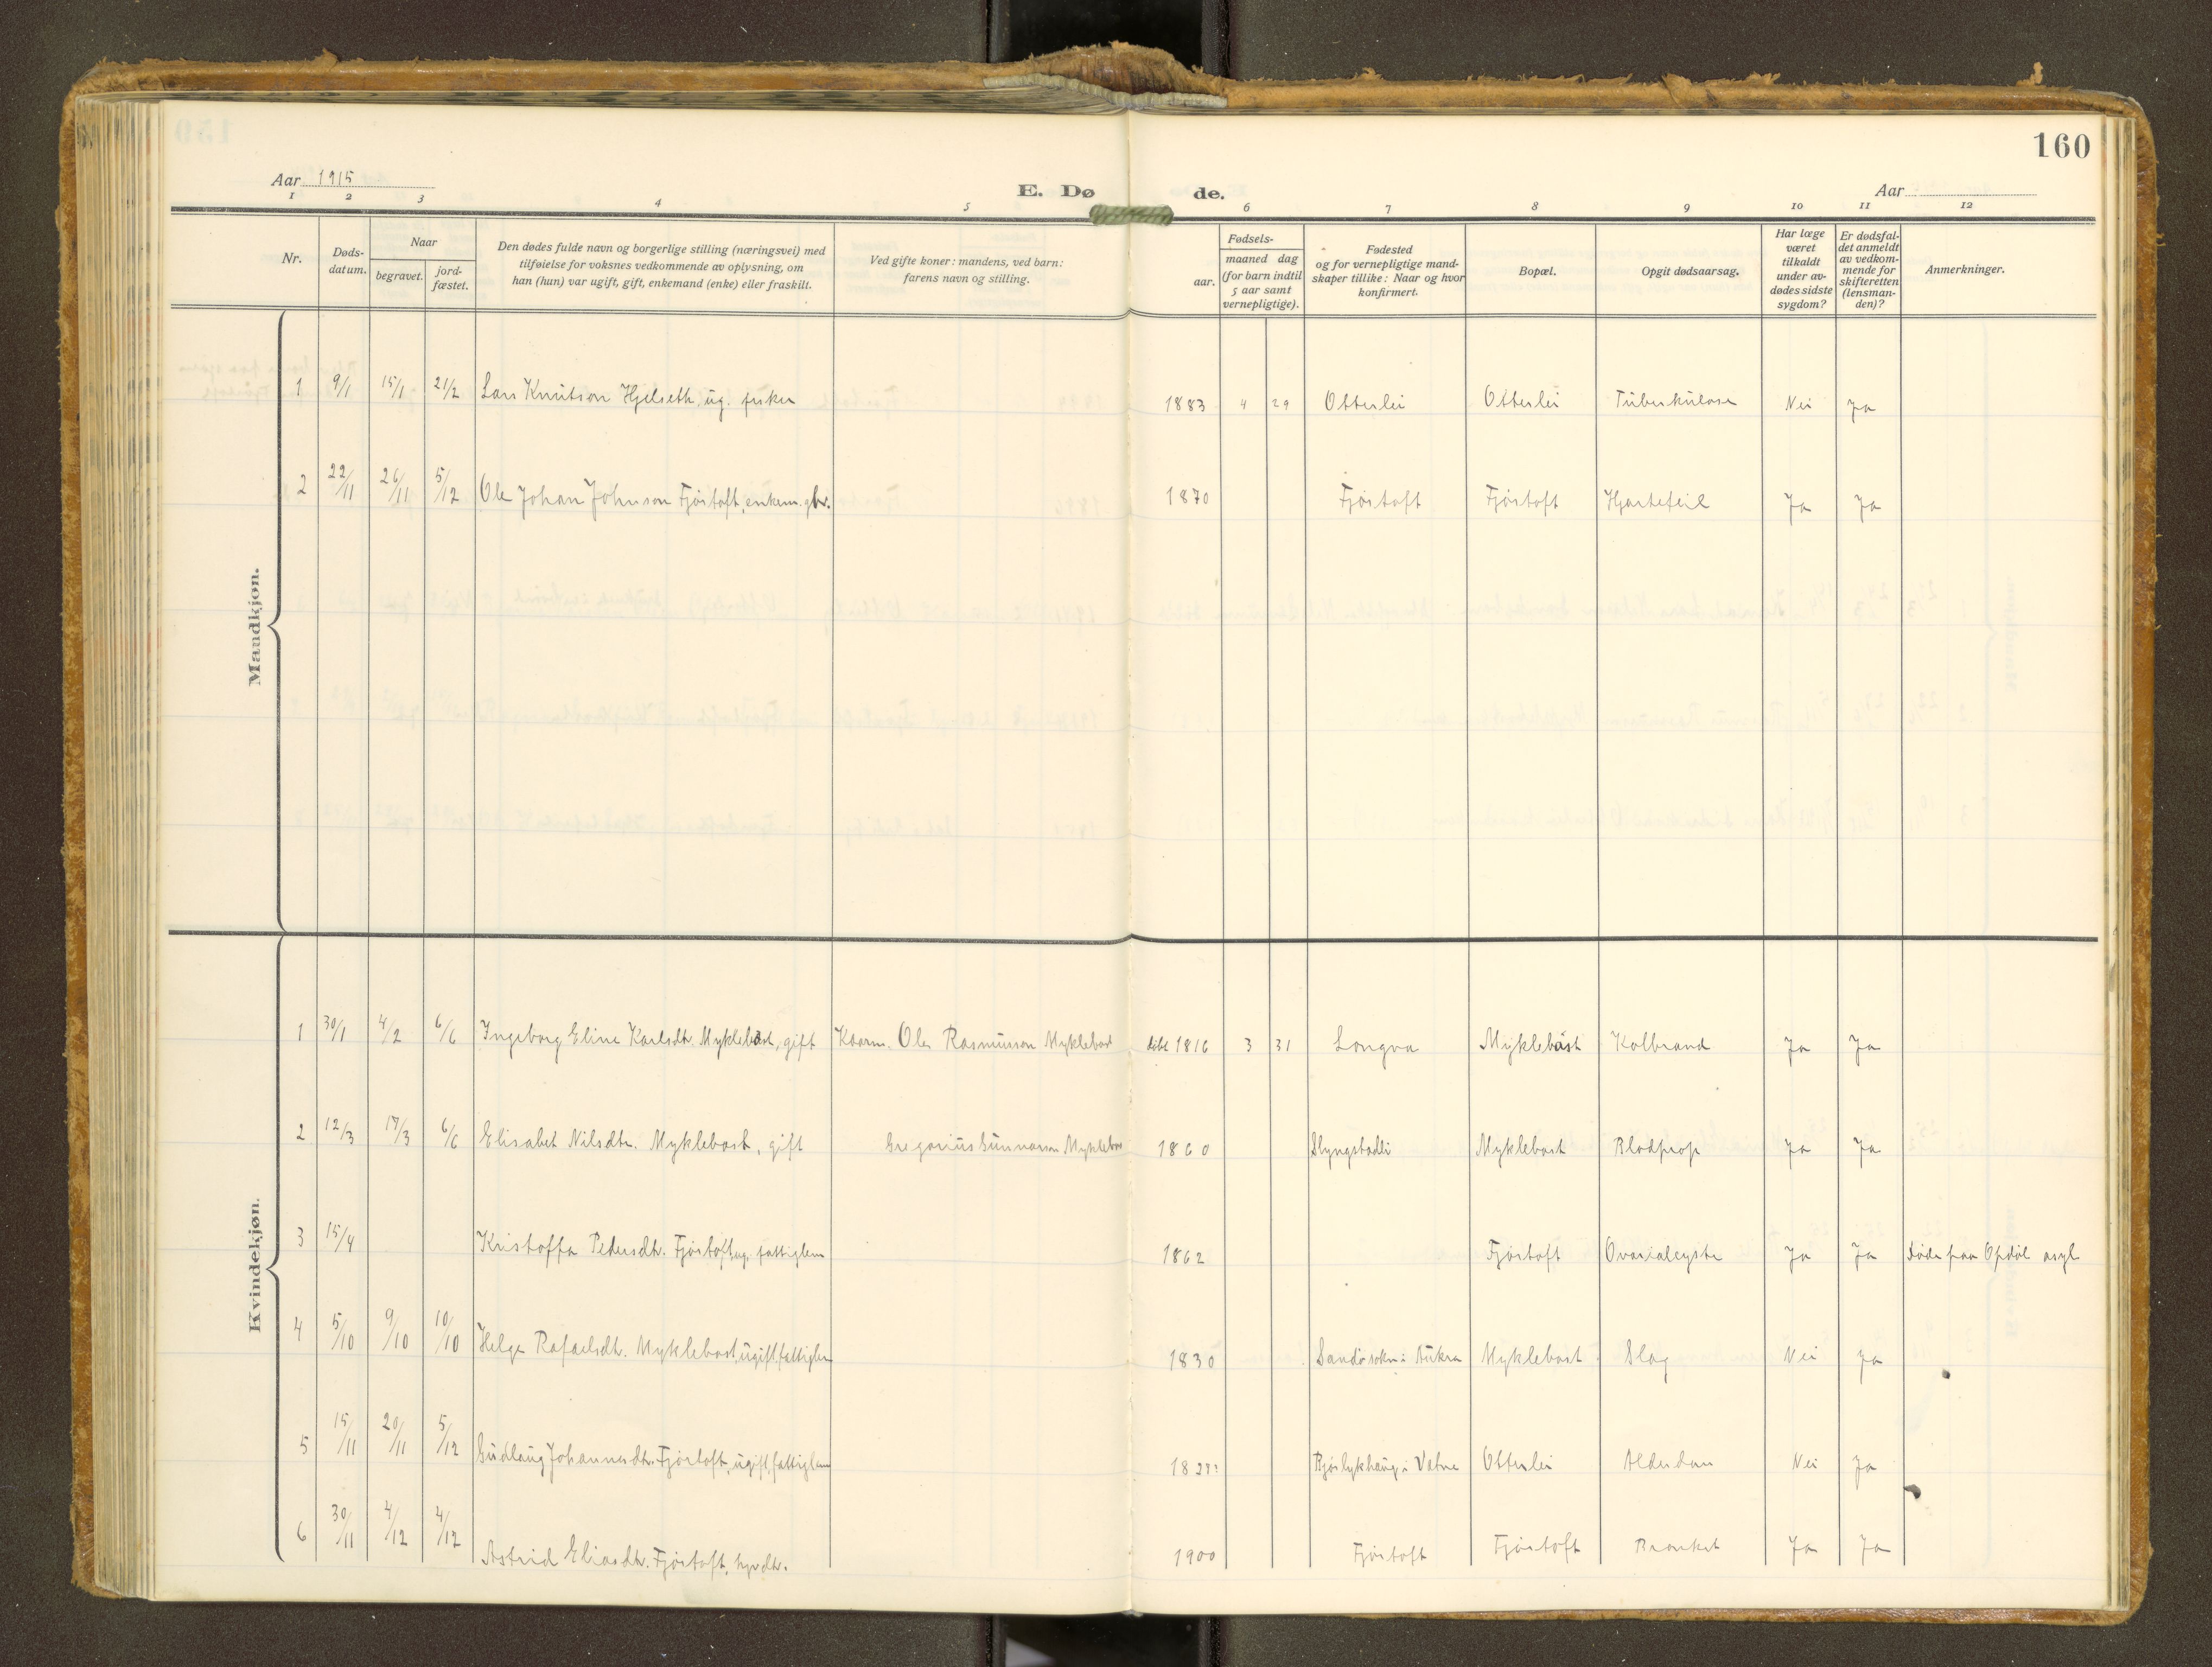 160
Aar 1915
E. Dø de.
Aar
1 2 3 4 5 6 7 8 9 10 11 12
Nr.
Døds-
datum.
Naar
begravet.
jord-
fæstet.
Den dødes fulde navn og borgerlige stilling (næringsvei) med
tilføielse for voksnes vedkommende av oplysning, om
han (hun) var ugift, gift, enkemand (enke) eller fraskilt.
Ved gifte koner: mandens, ved barn:
farens navn og stilling.
Fødsels-
aar.
maaned dag
(for barn indtil
5 aar samt
vernepligtige).
Fødested
og for vernepligtige mand-
skaper tillike: Naar og hvor
konfirmert.
Bopæl.
Opgit dødsaarsag.
Har læge
været
tilkaldt
under av-
dødes sidste
sygdom?
Er dødsfal-
det anmeldt
av vedkom-
mende for
skifteretten
(lensman-
den)?
Anmerkninger.
Mandkjøn.
1 9/1 15/1 21/2 Lars Knutson Hjelseth, ug. fisker 1883 4 29 Otterlei Otterlei Tuberkulose Nei Ja
2 22/11 26/11 5/12 Ole Johan Johnson Fjörtoft, enkem. gbr. 1870 Fjörtoft Fjörtoft Hjertefeil Ja Ja
Kvindekjøn.
1 30/1 4/2 6/6 Ingeborg Eline Karlsdtr. Myklebost, gift Kaarm. Ole Rasmusson Myklebost 1816 3 31 Longva Myklebust Kolbrand Ja Ja
2 12/3 17/3 6/6 Elisabet Nilsdtr. Myklebost, gift Gregorius Gunnarson Myklebos 1860 Slyngstadli Myklebost Blodprop Ja Ja
3 15/4 Kristoffa Pedersdtr. Fjörtoft, ug. fattiglem 1862 Fjörtoft Ovarialcyste Ja Ja Döde paa Opdöl asyl
4 5/10 9/10 10/10 Helge Rafaelsdtr. Myklebost, ugift, fattiglem 1830 Sandö sokn i Aukra Myklebost Slag Nei Ja
5 15/11 20/11 5/12 Gudlaug Johannesdtr. Fjörtoft, ugift, fattiglem Vatne Otterlei Alderdom Nei Ja
6 30/11 4/12 4/12 Astrid Eliasdtr. Fjörtoft, 1900 Fjörtoft Fjörtoft Bronkit Ja Ja